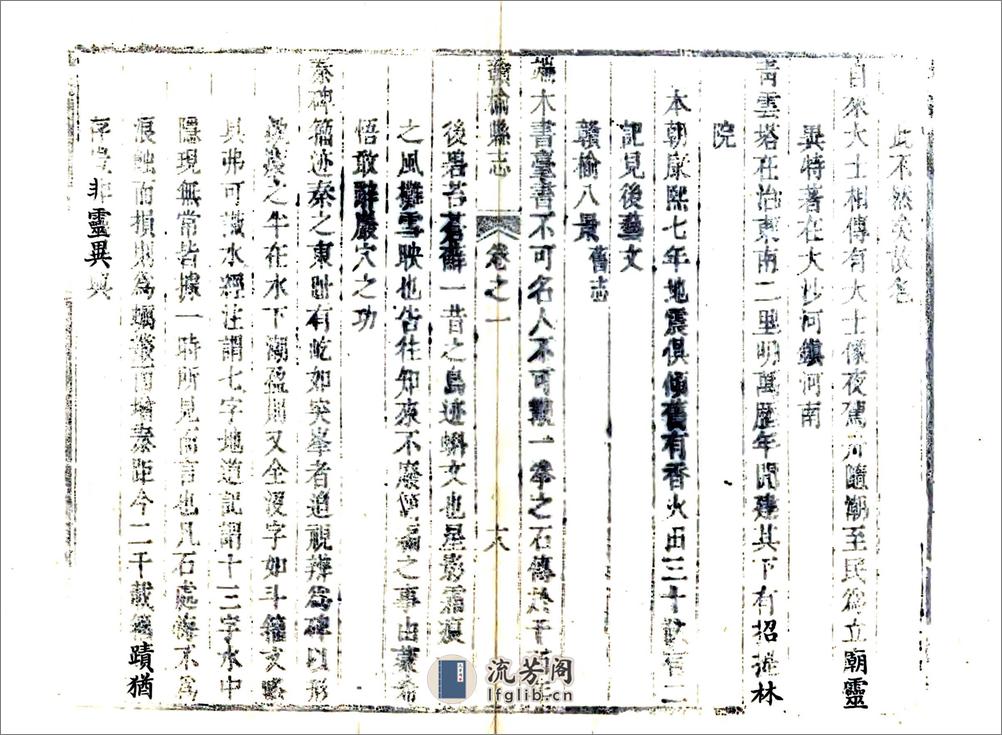 此不然矣故名
自來大士相傳有大士像夜駕舟隨潮至民爲立廟靈
異特著在大沙河鎮河南
青雲塔在治東南二里明萬歷年間建其下有招提林
院
本朝康熙七年地震俱傾舊有香火田三十畝有二
記見後藝文
贛榆八景 舊志
端木書臺書不可名人不可覩一拳之石傳於千
贛榆縣志 卷之一 十八
後碧若蒼蘚一昔之鳥迹蝌文也星影霜痕
之風欞雪映也告往知來不廢
之事由
希
悟敢辭巖穴之功
秦碑篇迹秦之東
有屹如突峯者迫視辨爲碑以形
之牛在水下潮盈則又全沒字如斗籀文略
具弗可識水經注謂七字地道記謂十三字水中
隱現無常皆據一時所見而言也凡石處海不爲
浪蝕而損則爲蠣
秦距今二千載
蹟猶
存豈非靈異與
流芳阁
lfglib.cn